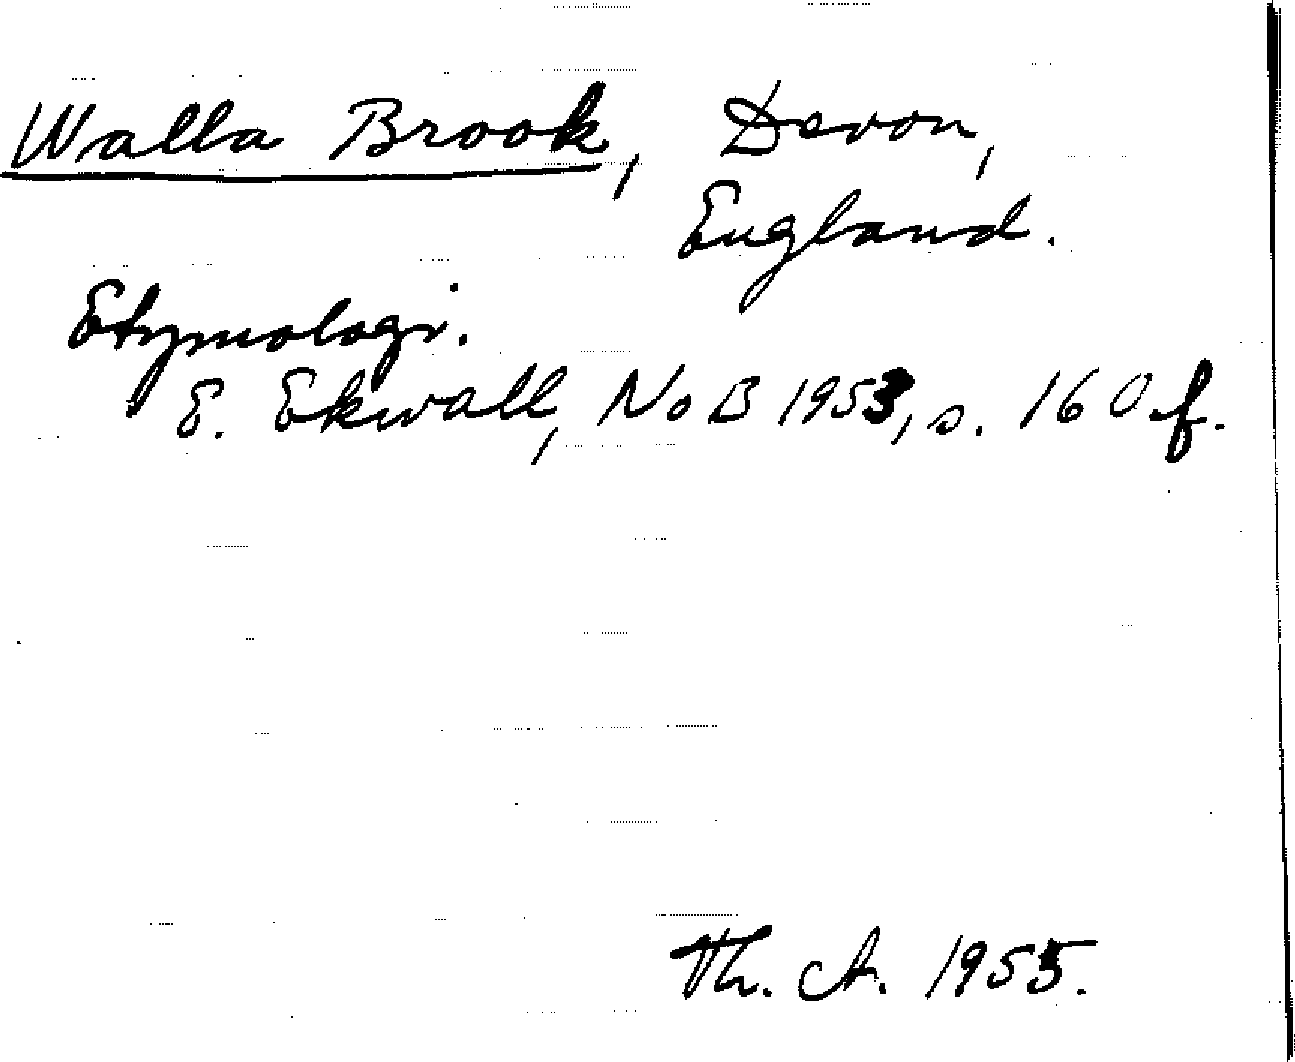 Walla Brook, Devon,
England.
Etymologi.
E. Ekwall, NoB 1953, s. 160 f.
Th. A. 1955.